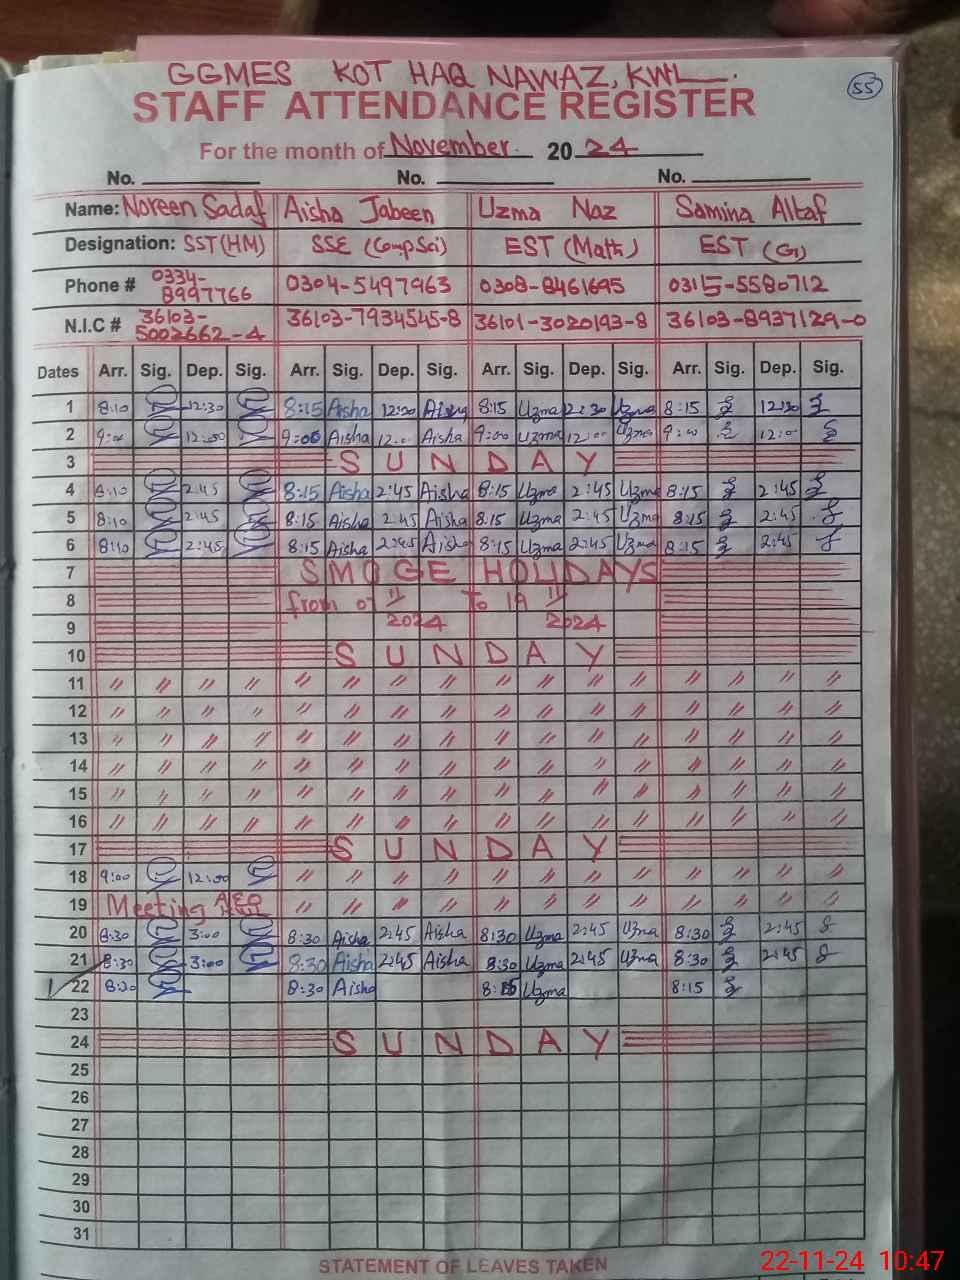 GGMES KOT HAQ NAWAZ, KWL.
55
STAFF ATTENDANCE REGISTER
For the month of November. 20 24
No. No. No.
Name: Noreen Sadaf Aisha Jabeen Uzma Naz Samina Altaf
Designation: SST(HM) SSE (CompSci) EST (Math) EST (G)
Phone # 0334-8997766 0304-5497963 0308-8461695 0315-5580712
N.I.C # 36103-5002662-4 36103-7934545-8 36101-3020193-8 36103-8937129-0
Dates Arr. Sig. Dep. Sig. Arr. Sig. Dep. Sig. Arr. Sig. Dep. Sig. Arr. Sig. Dep. Sig.
1 8:10 12:30 8:15 Aisha 12:30 Aisha 8:15 Uzma 12:30 Uzma 8:15 12:30
2 9:00 12:00 9:00 Aisha 12:00 Aisha 9:00 Uzma 12:00 Uzma 9:00 12:00
3 SUNDAY
4 8:10 2:45 8:15 Aisha 2:45 Aisha 8:15 Uzma 2:45 Uzma 8:15 2:45
5 8:10 2:45 8:15 Aisha 2:45 Aisha 8:15 Uzma 2:45 Uzma 8:15 2:45
6 8:10 2:45 8:15 Aisha 2:45 Aisha 8:15 Uzma 2:45 Uzma 8:15 2:45
7 SMOGE HOLIDAYS
8 from 07 11 To 19 11
9 2024 2024
10 SUNDAY
11 〃 〃 〃 〃 〃 〃 〃 〃 〃 〃 〃 〃 〃 〃 〃 〃
12 〃 〃 〃 〃 〃 〃 〃 〃 〃 〃 〃 〃 〃 〃 〃 〃
13 〃 〃 〃 〃 〃 〃 〃 〃 〃 〃 〃 〃 〃 〃 〃 〃
14 〃 〃 〃 〃 〃 〃 〃 〃 〃 〃 〃 〃 〃 〃 〃 〃
15 〃 〃 〃 〃 〃 〃 〃 〃 〃 〃 〃 〃 〃 〃 〃 〃
16 〃 〃 〃 〃 〃 〃 〃 〃 〃 〃 〃 〃 〃 〃 〃 〃
17 SUNDAY
18 9:00 12:00 〃 〃 〃 〃 〃 〃 〃 〃 〃 〃 〃 〃
19 Meeting AEO 〃 〃 〃 〃 〃 〃 〃 〃 〃 〃 〃 〃
20 8:30 3:00 8:30 Aisha 2:45 Aisha 8:30 Uzma 2:45 Uzma 8:30 2:45
21 8:30 3:00 8:30 Aisha 2:45 Aisha 8:30 Uzma 2:45 Uzma 8:30 2:45
22 8:30 8:30 Aisha 8:15 Uzma 8:15
23
24 SUNDAY
25
26
27
28
29
30
31
STATEMENT OF LEAVES TAKEN
22-11-24 10:47